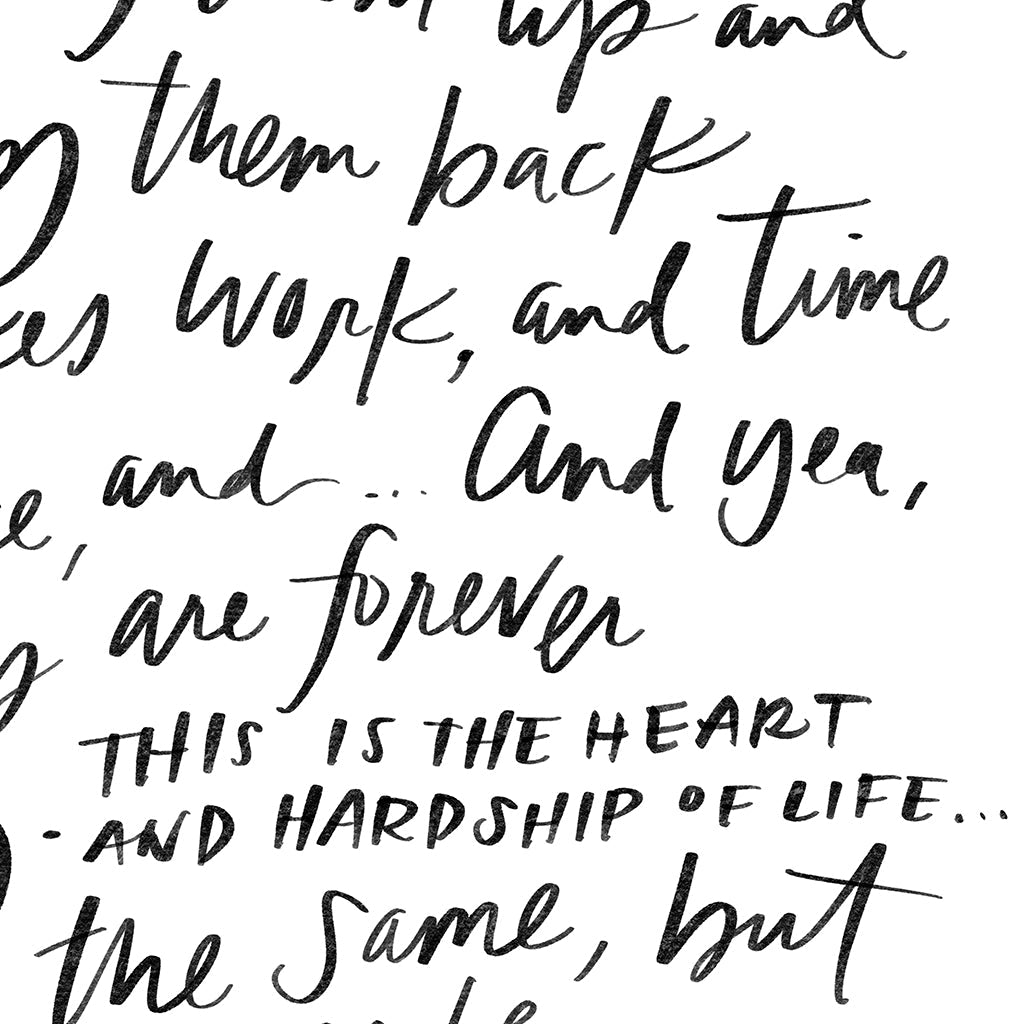 up and
them back
work, and time
and ... And yea,
are forever
THIS IS THE HEART
AND HARDSHIP OF LIFE...
the same, but